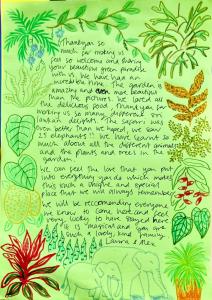 Thankyou so
much for making us
feel so welcome and sharing
your beautiful green paradise
with us. We have had an
incredible time. The garden is
amazing and even more beautiful
than the pictures. We loved all
the delicious food. Thankyou for
making us so many different sri
lankan delights. The safari was
even better than we hoped, we saw
elephants!! We have learnt so
much about all the different animals
and the plants and trees in the
garden.
We can feel the love that you put
into everything you do which makes
this such a unique and special
place that we will always remember.
We will be reccomending everyone
we know to come here and feel
very lucky to have stayed here
it is magical and you are
such a lovely, kind family.
Laura & Alex